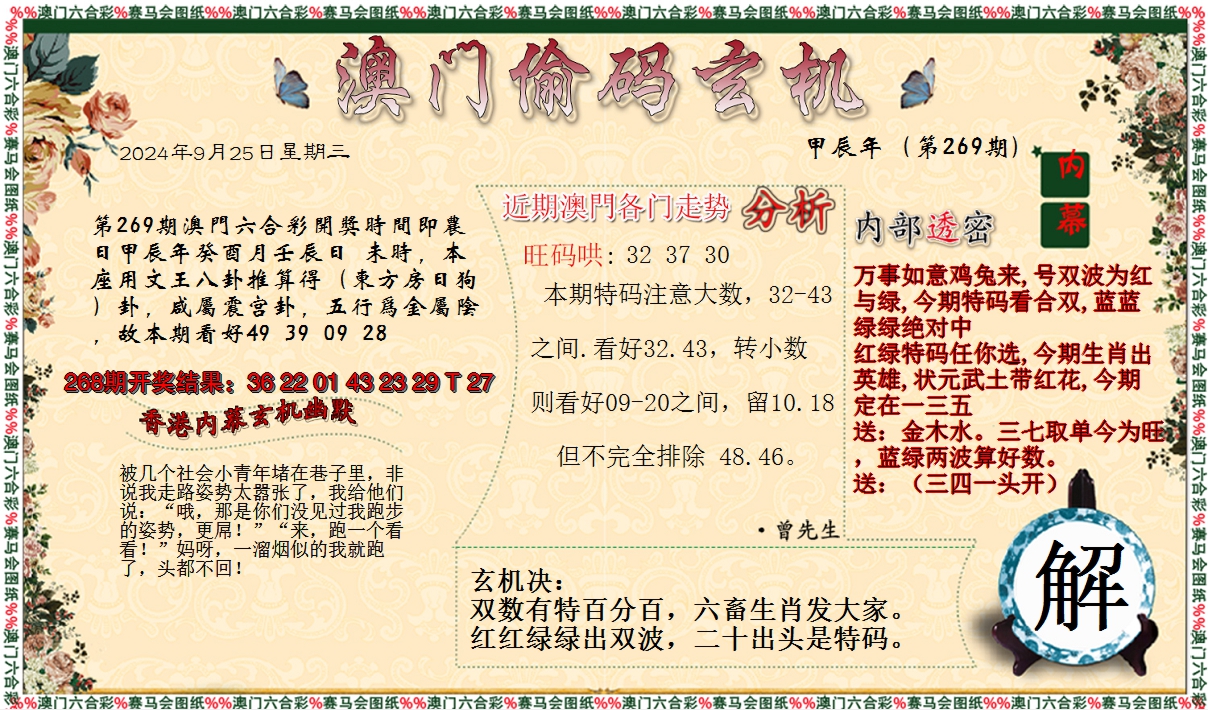 %%澳门六合彩%赛马会图纸%%澳门六合彩%赛马会图纸%%澳门六合彩%赛马会图纸%%澳门六合彩%赛马会图纸%%澳门六合彩%赛马会图纸%%澳门六合彩%赛马会图纸%%
澳门偷码玄机
2024年9月25日星期三
甲辰年（第269期）
内幕
第269期澳門六合彩開獎時間即農
日甲辰年癸酉月壬辰日 未時，本
座用文王八卦推算得（東方房日狗
）卦，咸屬震宫卦，五行爲金屬陰
，故本期看好49 39 09 28
268期开奖结果：36 22 01 43 23 29 T 27
香港内幕玄机幽默
被几个社会小青年堵在巷子里，非
说我走路姿势太嚣张了，我给他们
说：“哦，那是你们没见过我跑步
的姿势，更屌！”“来，跑一个看
看！”妈呀，一溜烟似的我就跑
了，头都不回！
近期澳門各门走势 分析
旺码哄: 32 37 30
本期特码注意大数，32-43
之间.看好32.43，转小数
则看好09-20之间，留10.18
但不完全排除 48.46。
·曾先生
内部透密
万事如意鸡兔来,号双波为红
与绿,今期特码看合双,蓝蓝
绿绿绝对中
红绿特码任你选,今期生肖出
英雄,状元武士带红花,今期
定在一三五
送：金木水。三七取单今为旺
，蓝绿两波算好数。
送：（三四一头开）
玄机决：
双数有特百分百，六畜生肖发大家。
红红绿绿出双波，二十出头是特码。
解
%%澳门六合彩%赛马会图纸%%澳门六合彩%赛马会图纸%%澳门六合彩%赛马会图纸%%澳门六合彩%赛马会图纸%%澳门六合彩%赛马会图纸%%澳门六合彩%赛马会图纸%%